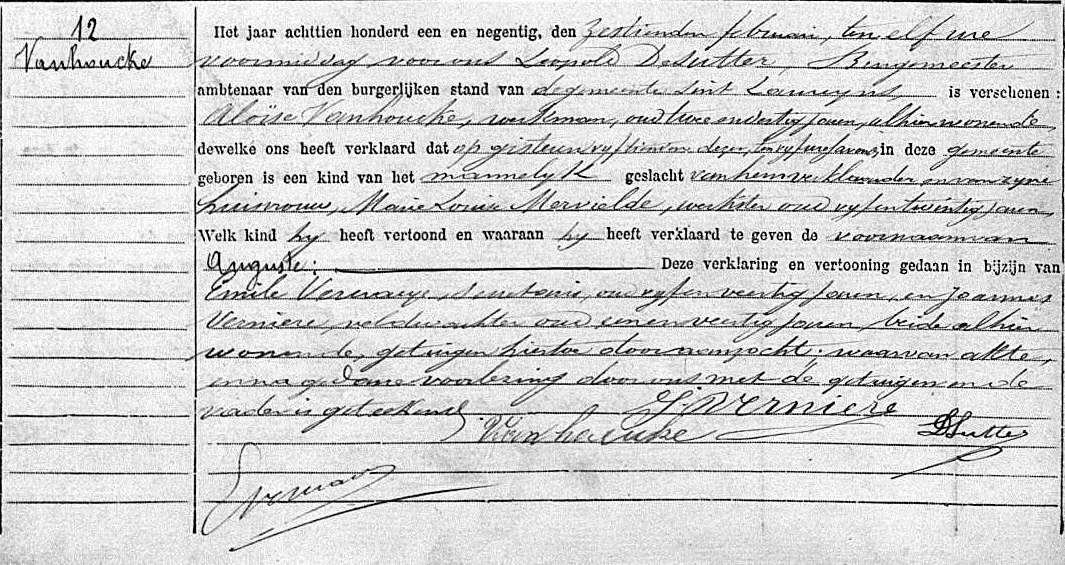 12
Vanhoucke
Het jaar achttien honderd een en negentig, den zestienden februari, ten elf ure
voormiddag voor ons Leopold DeSutter, Burgemeester
ambtenaar van den burgerlijken stand van de gemeente Sint Laureyns, is verschenen :
Aloïse Vanhoucke, werkman, oud twee en dertig jaren, alhier wonende,
dewelke ons heeft verklaard dat op gisteren vyftienden dezer, ten vyf ure s'avonds, in deze gemeente
geboren is een kind van het mannelyk geslacht van hem verklaarder en van zyne
huisvrouw, Marie Louise Mervielde, werkster oud vyf en twentig jaren,
Welk kind hy heeft vertoond en waaraan hy heeft verklaard te geven de voornaam van
Auguste: Deze verklaring en vertooning gedaan in bijzijn van
Emile , secretaris, oud vyf en veertig jaren, en Joannes
Verniere, veldwachter oud eenen veertig jaren, beide alhier
wonende, getuigen hiertoe door aanzocht; waarvan akte,
en na gedane voorlezing door ons met de getuigen en de
vader is geteekend
J. Verniere
Vanhoucke
DSutter